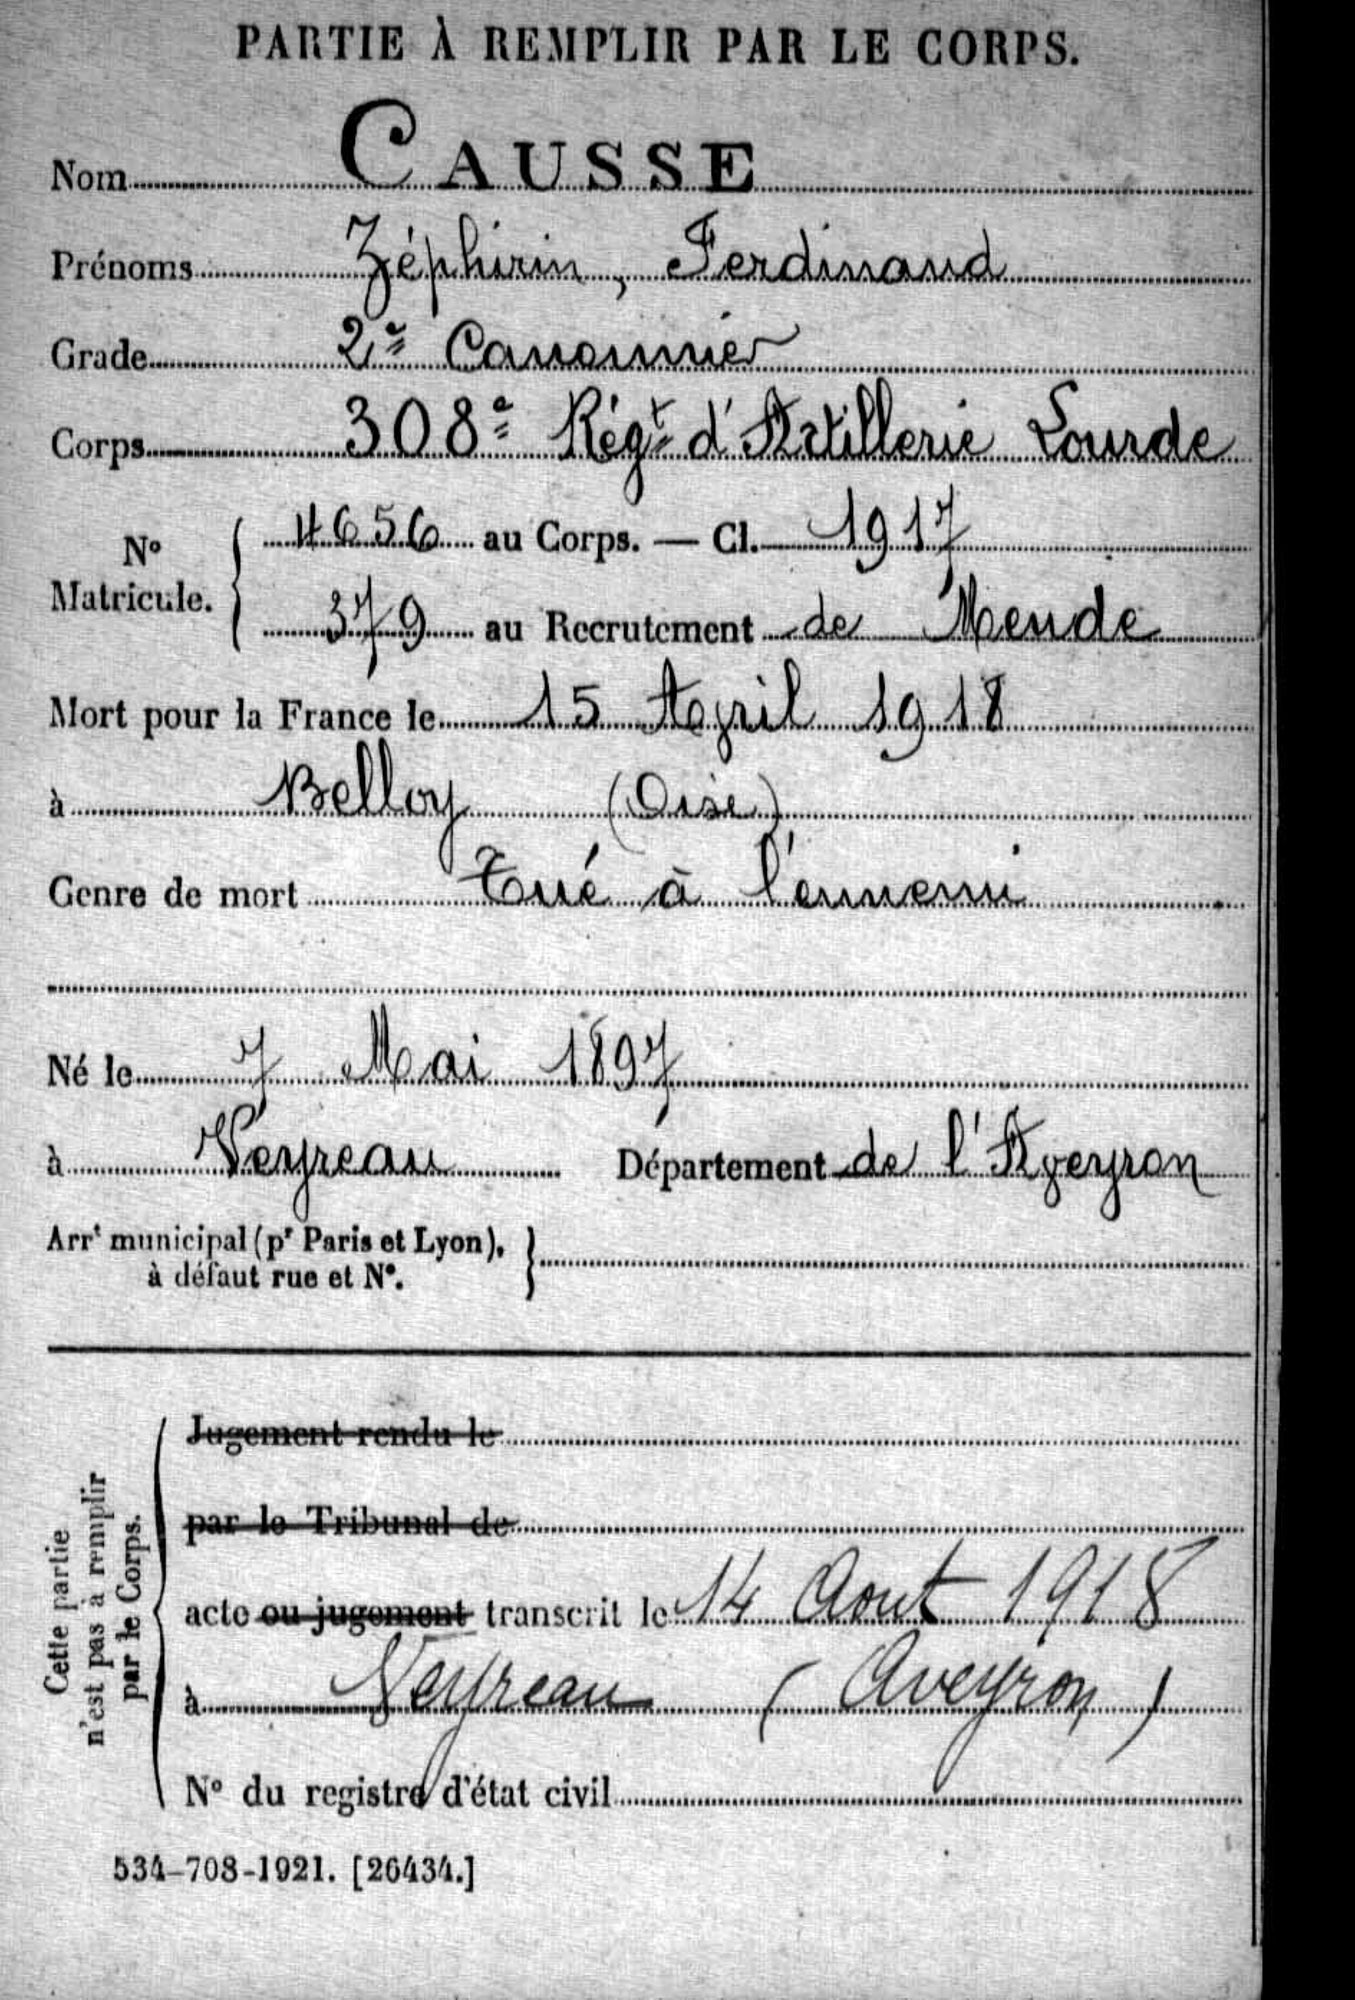 PARTIE À REMPLIR PAR LE CORPS.
Nom CAUSSE
Prénoms Zéphirin, Ferdinand
Grade 2e Canonnier
Corps 308e Régt d'Artillerie Lourde
No Matricule. { 4656 au Corps. — Cl. 1917
379 au Recrutement de Mende
Mort pour la France le 15 Avril 1918
à Belloy (Oise)
Genre de mort Tué à l'ennemi
Né le 7 Mai 1897
à Veyreau Département de l'Aveyron
Arrt municipal (pr Paris et Lyon),
à défaut rue et No.
Cette partie
n'est pas à remplir
par le Corps.
Jugement rendu le
par le Tribunal de
acte ou jugement transcrit le 14 Aout 1918
à Veyreau (Aveyron)
No du registre d'état civil
534-708-1921. [26434.]